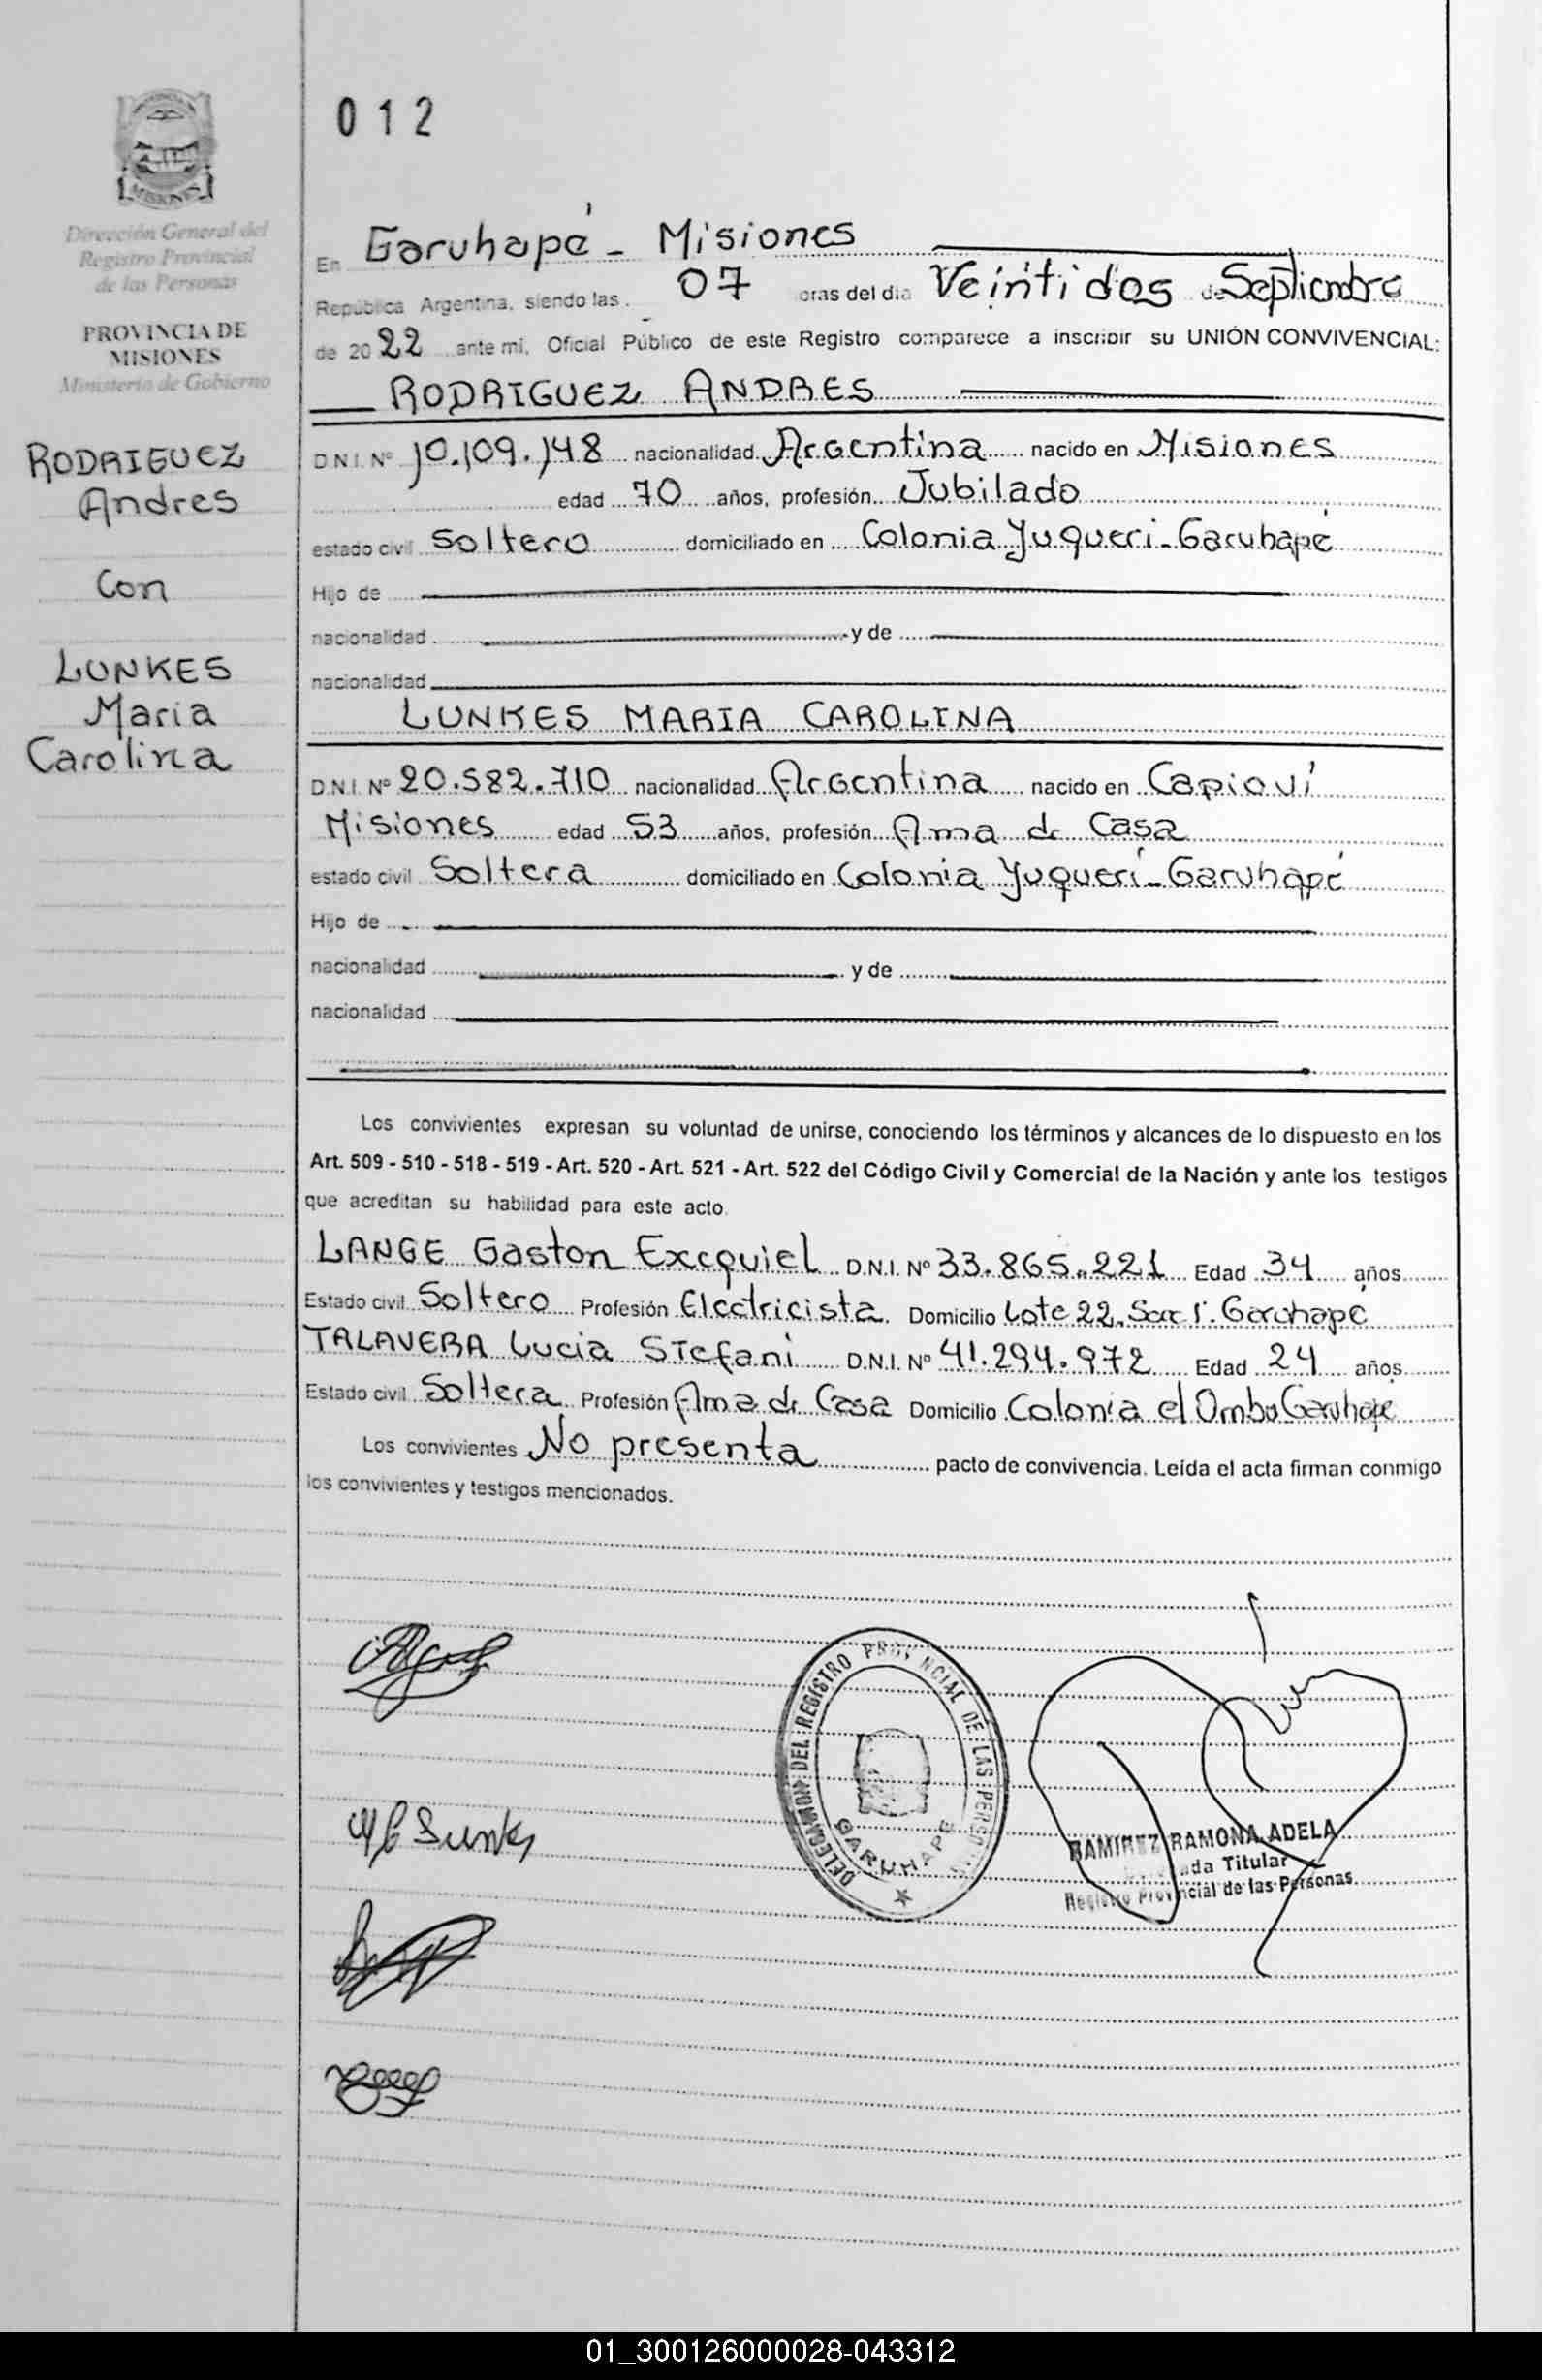 012
MISIONES
Dirección General del
Registro Provincial
de las Personas
PROVINCIA DE
MISIONES
Ministerio de Gobierno
RODRIGUEZ
Andres
Con
LUNKES
Maria
Carolina
En Garuhapé - Misiones
República Argentina, siendo las 07 oras del dia Veintidos de Septiembre
de 2022 ante mi, Oficial Público de este Registro comparece a inscribir su UNIÓN CONVIVENCIAL:
RODRIGUEZ ANDRES
D.N.I. Nº 10.109.148 nacionalidad Argentina nacido en Misiones
edad 70 años, profesión Jubilado
estado civil Soltero domiciliado en Colonia Yuqueri - Garuhapé
Hijo de
nacionalidad y de
nacionalidad
LUNKES MARIA CAROLINA
D.N.I. Nº 20.582.710 nacionalidad Argentina nacido en Capioví
Misiones edad 53 años, profesión Ama de Casa
estado civil Soltera domiciliado en Colonia Yuquerí - Garuhapé
Hijo de
nacionalidad y de
nacionalidad
Los convivientes expresan su voluntad de unirse, conociendo los términos y alcances de lo dispuesto en los
Art. 509 - 510 - 518 - 519 - Art. 520 - Art. 521 - Art. 522 del Código Civil y Comercial de la Nación y ante los testigos
que acreditan su habilidad para este acto.
LANGE Gaston Exequiel D.N.I. Nº 33.865.221 Edad 34 años
Estado civil Soltero Profesión Electricista Domicilio Lote 22. Garuhapé
TALAVERA Lucia Stefani D.N.I. Nº 41.294.972 Edad 24 años
Estado civil Soltera Profesión Ama de Casa Domicilio Colonia el Ombu Garuhapé
Los convivientes No presenta pacto de convivencia. Leída el acta firman conmigo
los convivientes y testigos mencionados.
DELEGACION DEL REGISTRO PROVINCIAL DE LAS PERSONAS
GARUHAPE
MC Lunkes
RAMIREZ RAMONA ADELA
Delegada Titular
Registro Provincial de las Personas
01_300126000028-043312